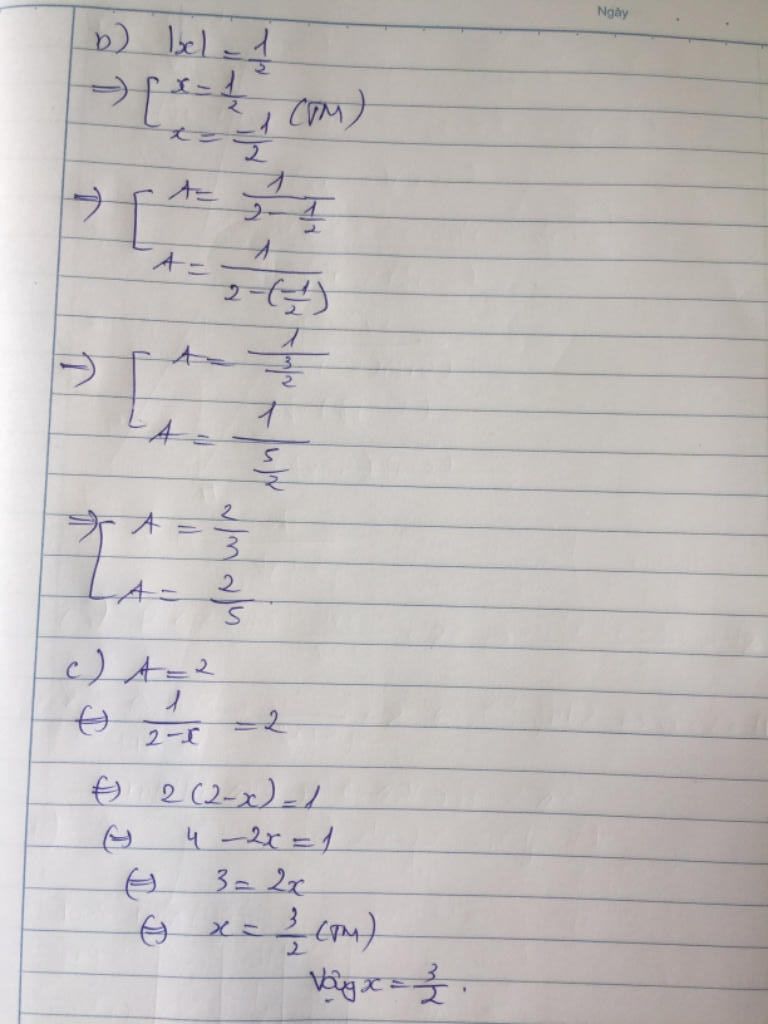 Ngày
b) |x| = 1/2
=> [ x = 1/2
x = -1/2 (TM)
=> [ A = 1/(2 - 1/2)
A = 1/(2 - (-1/2))
=> [ A = 1/(3/2)
A = 1/(5/2)
=> [ A = 2/3
A = 2/5
c) A = 2
(=) 1/(2-x) = 2
(=) 2(2-x) = 1
(=) 4 - 2x = 1
(=) 3 = 2x
(=) x = 3/2 (TM)
Vậy x = 3/2.